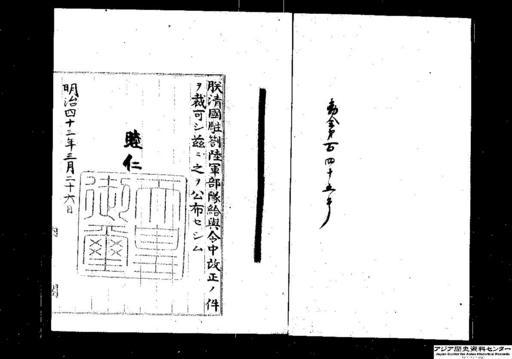 勅令第百四十五号
朕清國駐劄陸軍部隊給與令中改正ノ件
ヲ裁可シ茲ニ之ヲ公布セシム
睦仁
天皇
御璽
明治四十二年三月二十六日
内閣
アジア歴史資料センター
Japan Center for Asian Historical Records